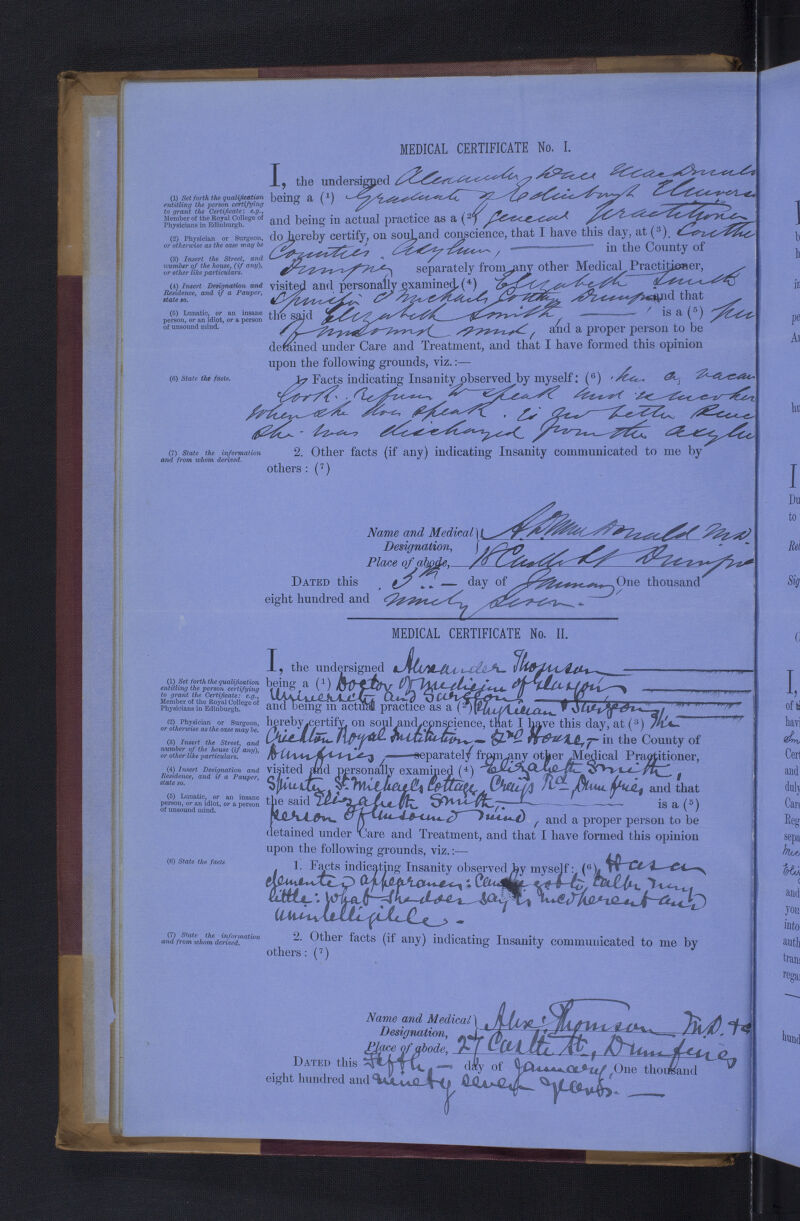 MEDICAL CERTIFICATE No. I.
I, the undersigned Alexander Dace MacDonald
(1) Set forth the qualification
entitling the person certifying
to grant the Certificate: e.g.,
Member of the Royal College of
Physicians in Edinburgh.
being a (1) Graduate of Edinburgh Univers
and being in actual practice as a (2) General Practitioner
(2) Physician or Surgeon,
or otherwise as the case may be
do hereby certify, on soul and conscience, that I have this day, at (3)
Counties Asylum, in the County of
(3) Insert the Street, and
number of the house, (if any),
or other like particulars.
Dumfries separately from any other Medical Practitioner,
(4) Insert Designation and
Residence, and if a Pauper,
state so.
visited and personally examined (4) Elizabeth Smith
Spinster St Michaels Cottage Dumfries and that
(5) Lunatic, or an insane
person, or an idiot, or a person
of unsound mind.
the said Elizabeth Smith, is a (5) per
of unsound mind, and a proper person to be
detained under Care and Treatment, and that I have formed this opinion
upon the following grounds, viz.:—
(6) State the facts.
1. Facts indicating Insanity observed by myself: (6) has a vacan
look. refuses to speak and is incoher
when she does speak. is no better since
she was discharged from the asylu
(7) State the information
and from whom derived.
2. Other facts (if any) indicating Insanity communicated to me by
others: (7)
Name and Medical
Designation,
A D MacDonald M.D.
Place of abode, 18 Castle St Dumfries
DATED this 5th day of January One thousand
eight hundred and ninety seven.
MEDICAL CERTIFICATE No. II.
I, the undersigned Alexander Thomson
(1) Set forth the qualification
entitling the person certifying
to grant the Certificate: e.g.,
Member of the Royal College of
Physicians in Edinburgh.
being a (1) Doctor of Medicine of Glasgow
University and Surgeon
and being in actual practice as a (2) Physician & Surgeon
(2) Physician or Surgeon,
or otherwise as the case may be.
hereby certify, on soul and conscience, that I have this day, at (3) The
Crichton Royal Institution – 2nd House, in the County of
(3) Insert the Street, and
number of the house (if any),
or other like particulars.
Dumfries, separately from any other Medical Practitioner,
(4) Insert Designation and
Residence, and if a Pauper,
state so.
visited and personally examined (4) Elizabeth Smith,
Spinster, St. Michaels Cottage, Craigs Rd, Dumfries, and that
(5) Lunatic, or an insane
person, or an idiot, or a person
of unsound mind.
the said Elizabeth Smith, is a (5)
person of unsound mind, and a proper person to be
detained under Care and Treatment, and that I have formed this opinion
upon the following grounds, viz.:—
(6) State the facts
1. Facts indicating Insanity observed by myself: (6) Has a
demented appearance: can be got to talk very
little: what she does say is incoherent and
unintelligible.
(7) State the information
and from whom derived.
2. Other facts (if any) indicating Insanity communicated to me by
others: (7)
Name and Medical
Designation,
Alex: Thomson M.D. &c
Place of abode, 27 Castle St., Dumfries
DATED this Fifth day of January, One thousand
eight hundred and ninety seven years.